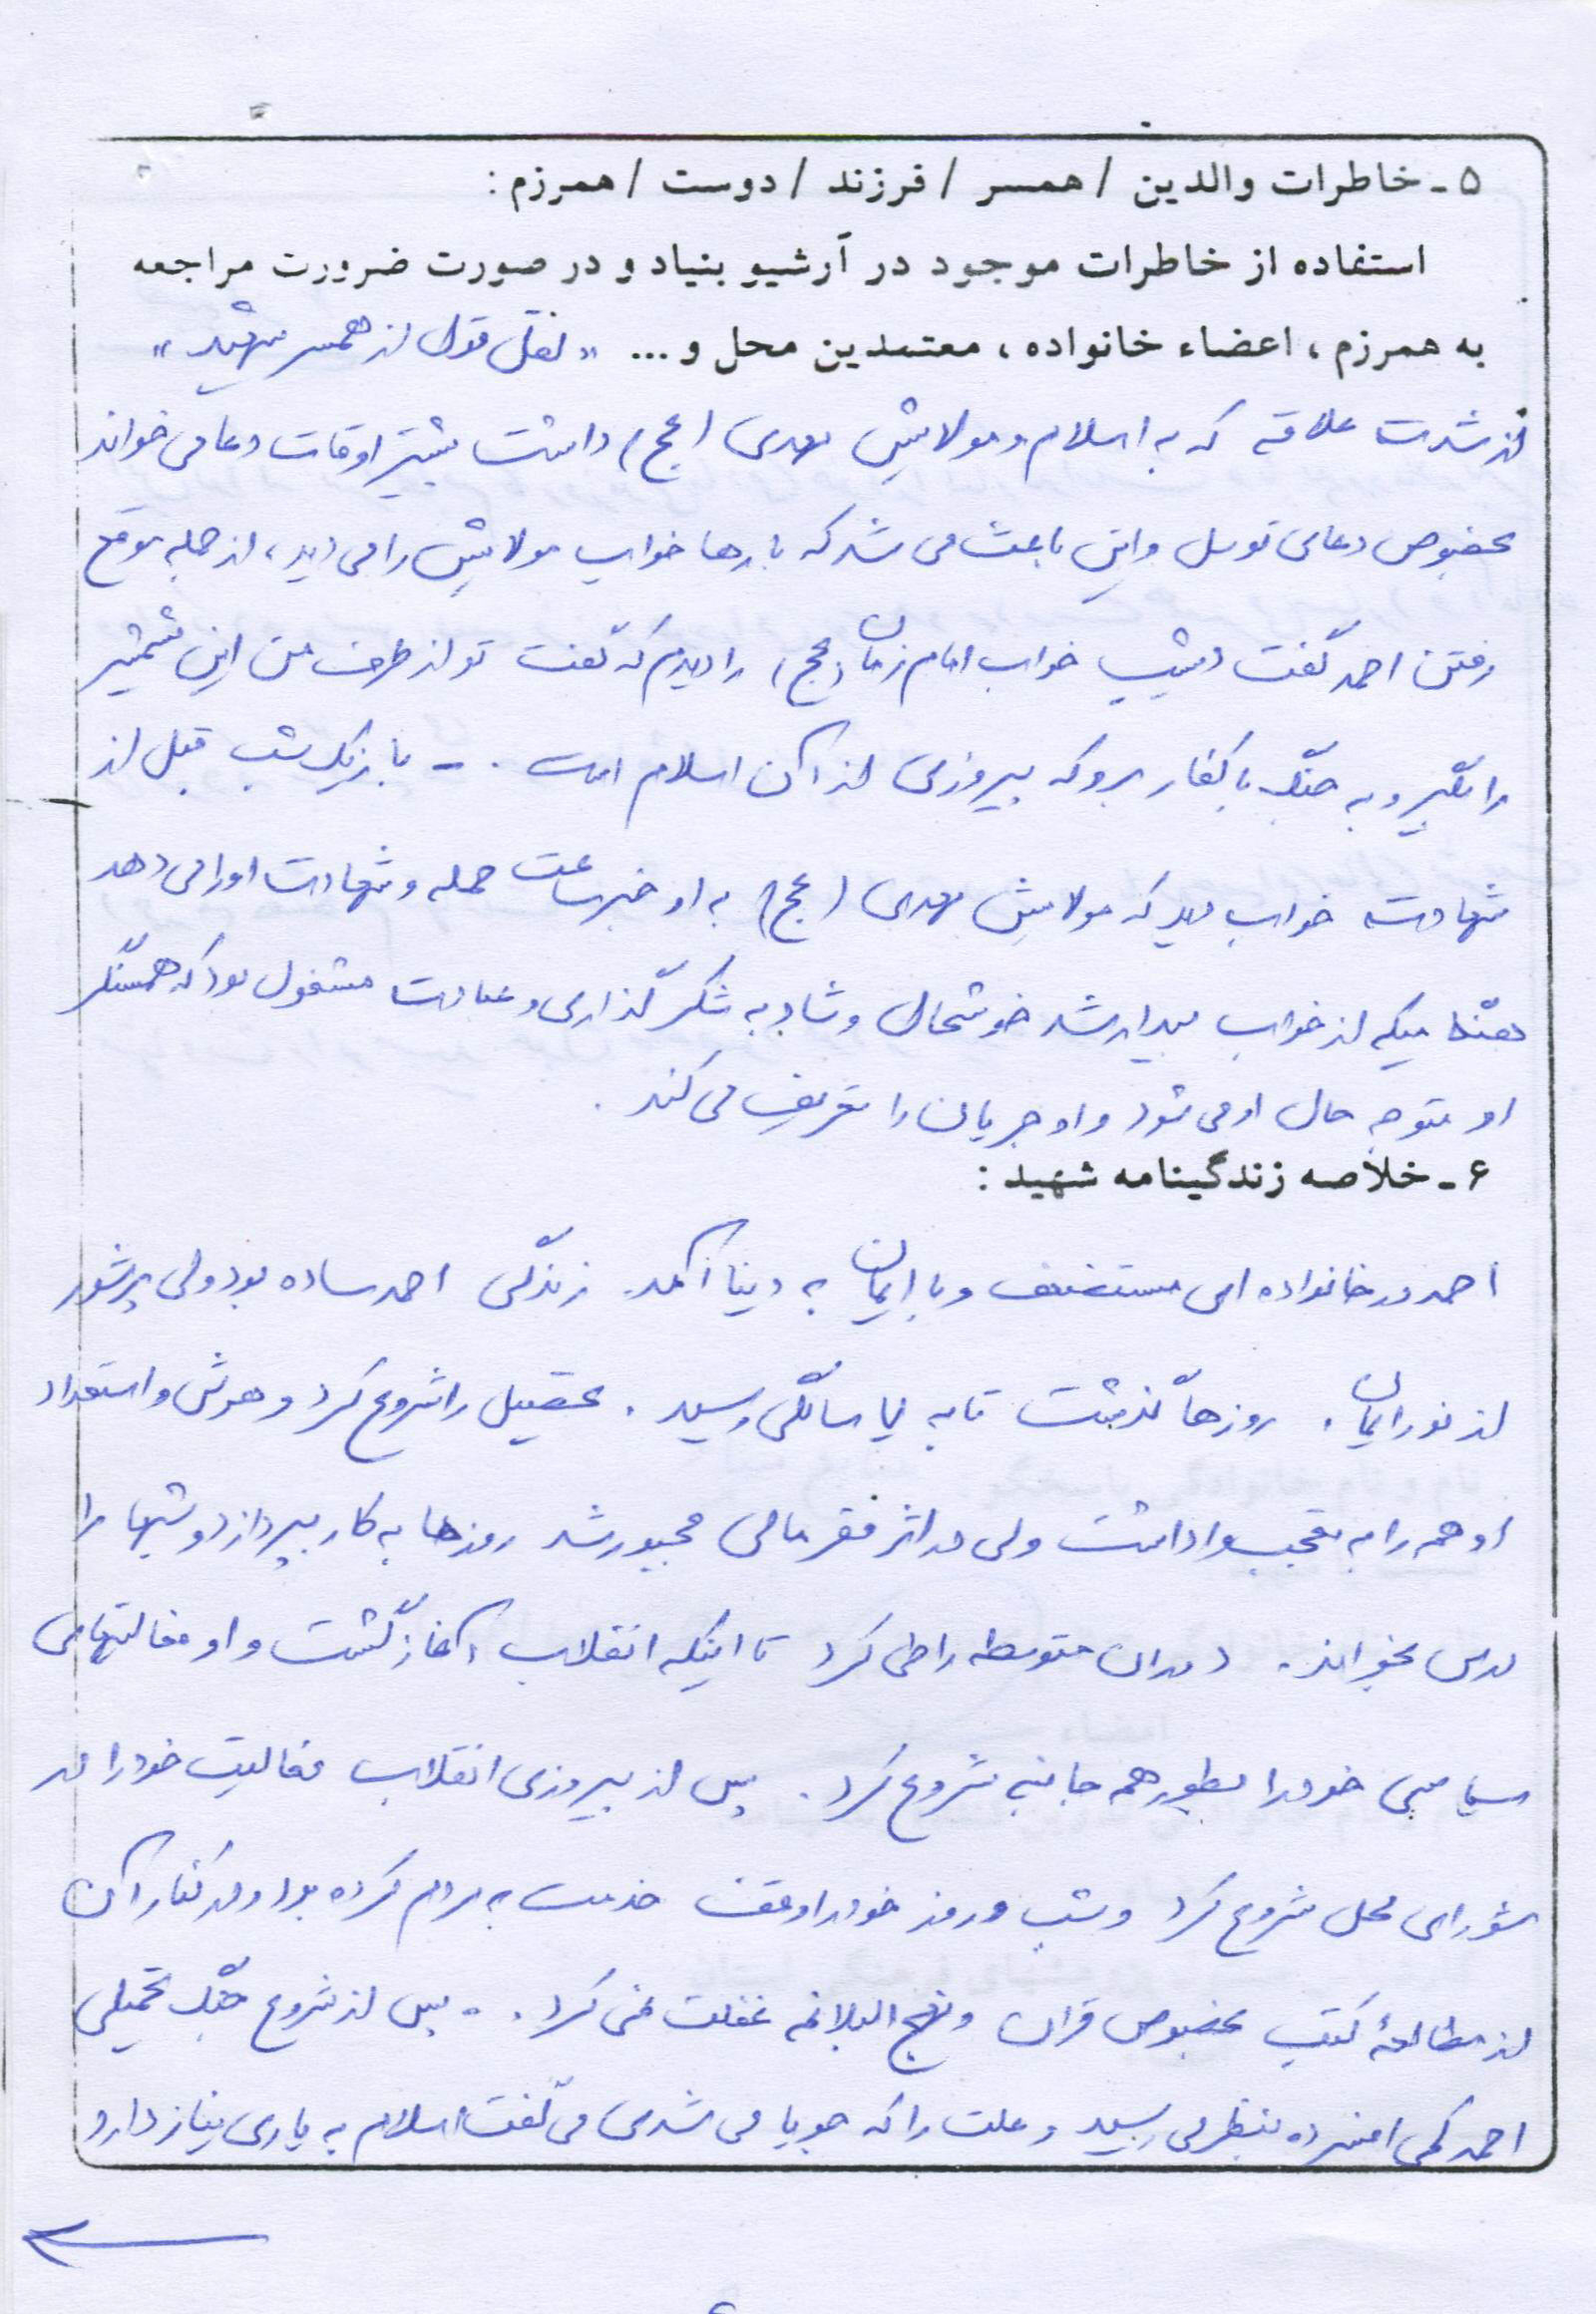 ۵ - خاطرات والدین / همسر / فرزند / دوست / همرزم :
استفاده از خاطرات موجود در آرشیو بنیاد و در صورت ضرورت مراجعه
به همرزم ، اعضاء خانواده ، معتمدین محل و ... « نقل قول از همسر شهید »
از شدت علاقه که به اسلام و مولایش مهدی (عج) داشت بیشتر اوقات دعا می خواند
بخصوص دعای توسل و این باعث می شد که بارها خواب مولایش را می دید ، از جمله موقع
رفتن احمد گفت دیشب خواب امام زمان (عج) را دیدم که گفت تو از طرف من این شمشیر
را بگیر و به جنگ با کفار برو که پیروزی از آن اسلام است . - باز یک شب قبل از
شهادت خواب دید که مولایش مهدی (عج) به او خبر ساعت حمله و شهادت او را می دهد
هنگامیکه از خواب بیدار شد خوشحال و شاد به شکرگذاری و عبادت مشغول بود که همسنگر
او متوجه حال او می شود و او جریان را تعریف می کند .
۶ - خلاصه زندگینامه شهید :
احمد در خانواده ای مستضعف و با ایمان به دنیا آمد . زندگی احمد ساده بود ولی پرشور
از نور ایمان . روزها گذشت تا به سالگی رسید . تحصیل را شروع کرد و هوش و استعداد
او همه را به تعجب واداشت ولی در اثر فقر مالی مجبور شد روزها به کار بپردازد و شبها را
درس بخواند . دوران متوسطه را طی کرد تا اینکه انقلاب آغاز گشت و او فعالیتهای
سیاسی خود را بطور همه جانبه شروع کرد . پس از پیروزی انقلاب فعالیت خود را در
شورای محل شروع کرد و شب و روز خود را وقف خدمت به مردم کرده بود و در کنار آن
از مطالعهٔ کتب بخصوص قران و نهج البلاغه غفلت نمی کرد . - پس از شروع جنگ تحمیلی
احمد کمی افسرده بنظر می رسید و علت را که جویا می شدی می گفت اسلام به یاری نیاز دارد